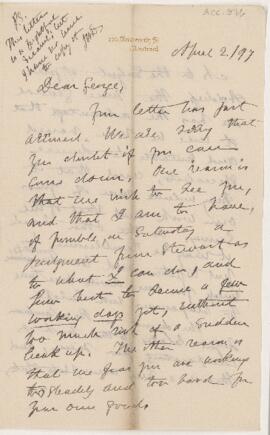 ACC. 546
P.S.
This letter
is a
I have
copy of
University St.
Montreal
April 2. /97
Dear George,
Your letter has just
arrived. We are sorry that
you doubt if you can
come down. One reason is
that we wish to see you,
and that I am to have,
if possible, on Saturday, a
judgment from Stewart as
to what I can do, and
how best to secure a few
working days yet, without
too much risk of a sudden
break up. The other reason is
that we fear you are working
too steadily and too hard for
your own good.